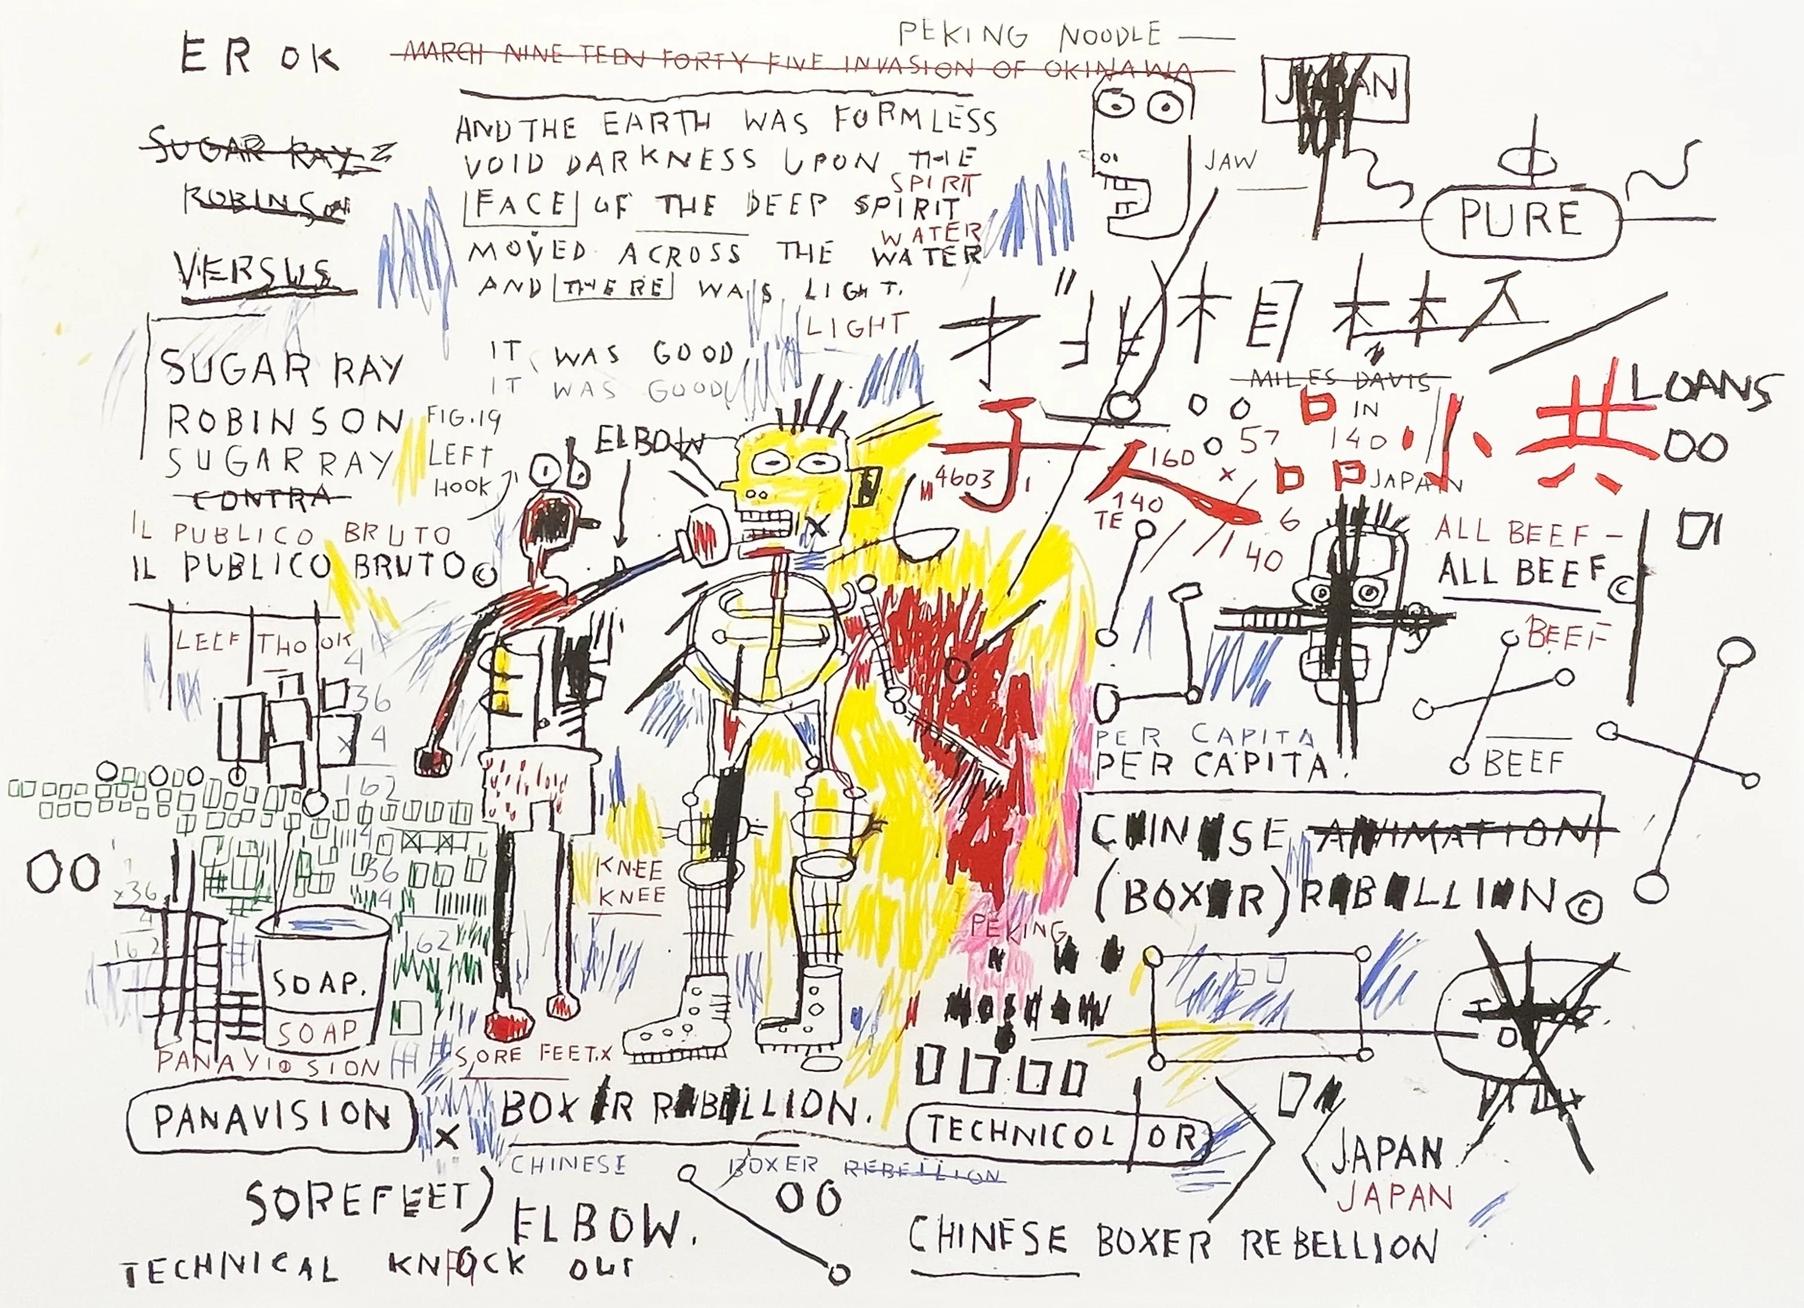 PEKING NOODLE —
EROK
MARCH NINE TEEN FORTY FIVE INVASION OF OKINAWA
JAPAN
AND THE EARTH WAS FORMLESS
SUGAR RAY
VOID DARKNESS UPON THE
JAW
SPIRIT
ROBINSON
FACE OF THE DEEP SPIRIT
PURE
WATER
MOVED ACROSS THE WATER
VERSUS
AND THERE WAS LIGHT.
LIGHT
木目木木
IT WAS GOOD
IT WAS GOOD
SUGAR RAY
ROBINSON
SUGAR RAY
CONTRA
MILES DAVIS
LOANS
OO
FIG.19
LEFT
HOOK
ELBOW
IN
140
57
160
子人
小共
4603
JAPAN
140
TE
6
40
IL PUBLICO BRUTO
IL PUBLICO BRUTO©
ALL BEEF –
ALL BEEF©
BEEF
LEEF THO OK
4
36
x 4
162
PER CAPITA
PER CAPITA.
BEEF
CHINESE ANIMATION
(BOXER) REBELLION©
OO
4
36
4
62
x36
4
162
KNEE
KNEE
PEKING
SOAP.
SOAP
PANAVISION
SORE FEET.X
MOSCOW
PANAVISION
X
BOXER REBELLION.
TECHNICOLOR
JAPAN
JAPAN
CHINESE BOXER REBELLION
SOREFEET)
ELBOW.
OO
CHINESE BOXER REBELLION
TECHNICAL KNOCK OUT